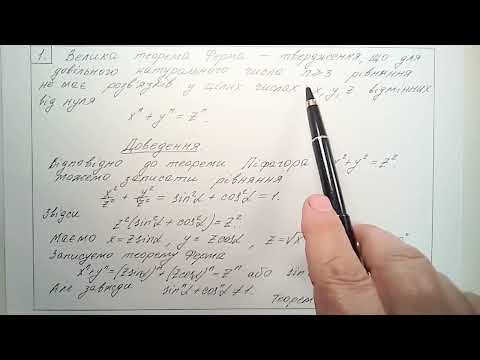 1. Велика теорема Ферма – твердження, що для
довільного натурального числа n≥3 рівняння
не має розв'язків у цілих числах x, y, z відмінних
від нуля
xⁿ + yⁿ = zⁿ.
Доведення.
Відповідно до теореми Піфагора x²+y²=z²
можемо записати рівняння
x²/z² + y²/z² = sin²α + cos²α = 1.
Звідси
z²(sin²α + cos²α) = z².
Маємо x = z sinα, y = z cosα, z=√x
Записуємо теорему Ферма
xⁿ+yⁿ=(z sinα)ⁿ+(z cosα)ⁿ = zⁿ або sin
Але завжди sinⁿα + cosⁿα ≠ 1.
Теорем